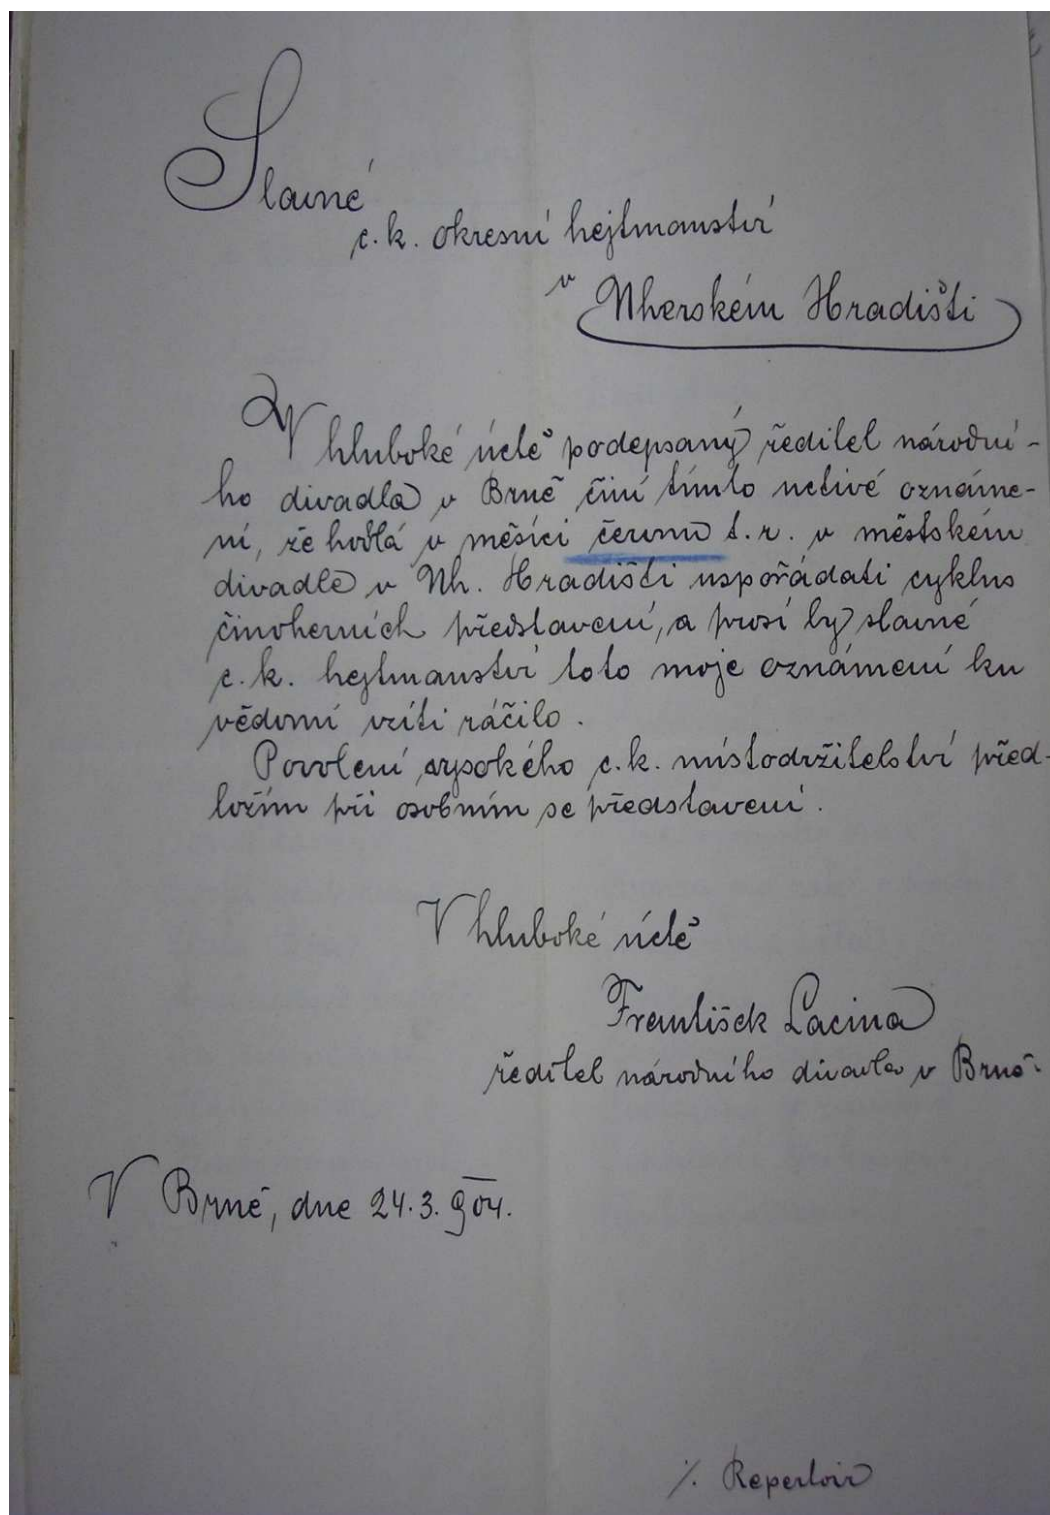 Slavné
c. k. okresní hejtmanství
v
Uherském Hradišti
V hluboké úctě podepsaný ředitel národní-
ho divadla v Brně činí tímto uctivé oznáme-
ní, že hodlá v měsíci červnu t. r. v městském
divadle v Uh. Hradišti uspořádati cyklus
činoherních představení, a prosí by slavné
c. k. hejtmanství toto moje oznámení ku
vědomí vzíti ráčilo.
Povolení vysokého c. k. místodržitelství před-
ložím při osobním se představení.
V hluboké úctě
František Lacina
ředitel národního divadla v Brně.
V Brně, dne 24. 3. 904.
·/. Repertoir